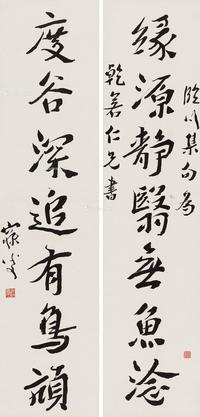 臨川集句為
緣源靜翳無魚淰
乾若仁兄書
度谷深追有鳥頏
寐叟